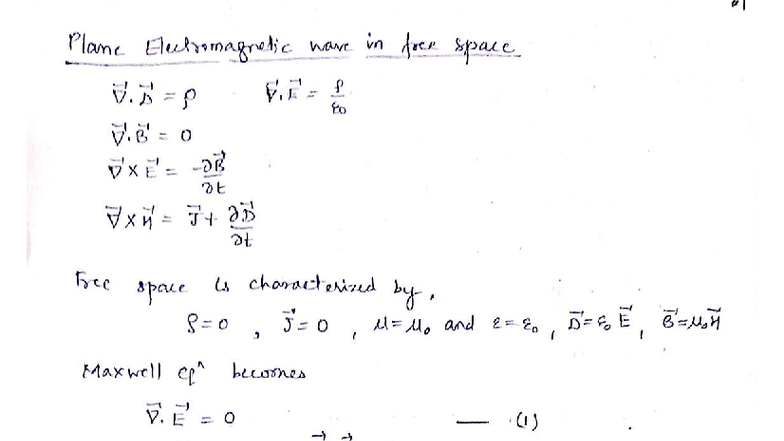 Plane Electromagnetic wave in free space
∇⃗.D⃗ = ρ    ∇⃗.E⃗ = ρ/ε₀
∇⃗.B⃗ = 0
∇⃗×E⃗ = -∂B⃗/∂t
∇⃗×H⃗ = J⃗ + ∂D⃗/∂t
Free space is characterized by,
ρ=0 , J⃗=0 , μ=μ₀ and ε=ε₀ , D⃗=ε₀E⃗ , B⃗=μ₀H⃗
Maxwell eqⁿ becomes
∇⃗.E⃗ = 0 — (1)